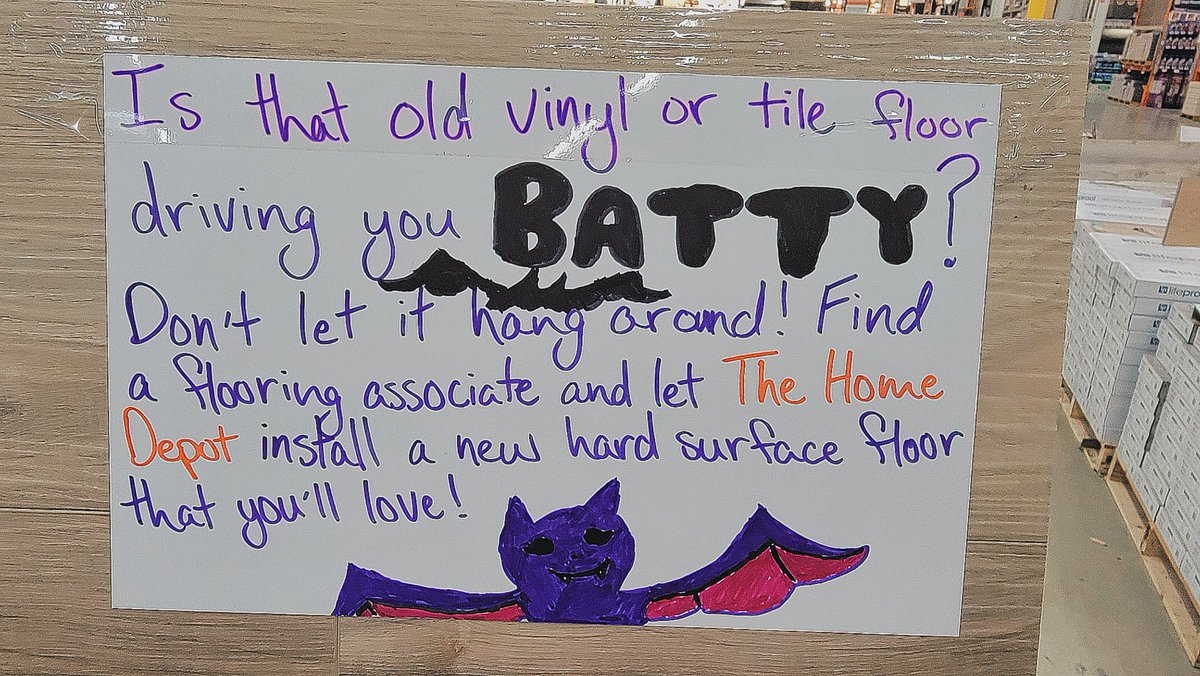 Is that old vinyl or tile floor
driving you BATTY?
Don't let it hang around! Find
a flooring associate and let The Home
Depot install a new hard surface floor
that you'll love!
lifeproof